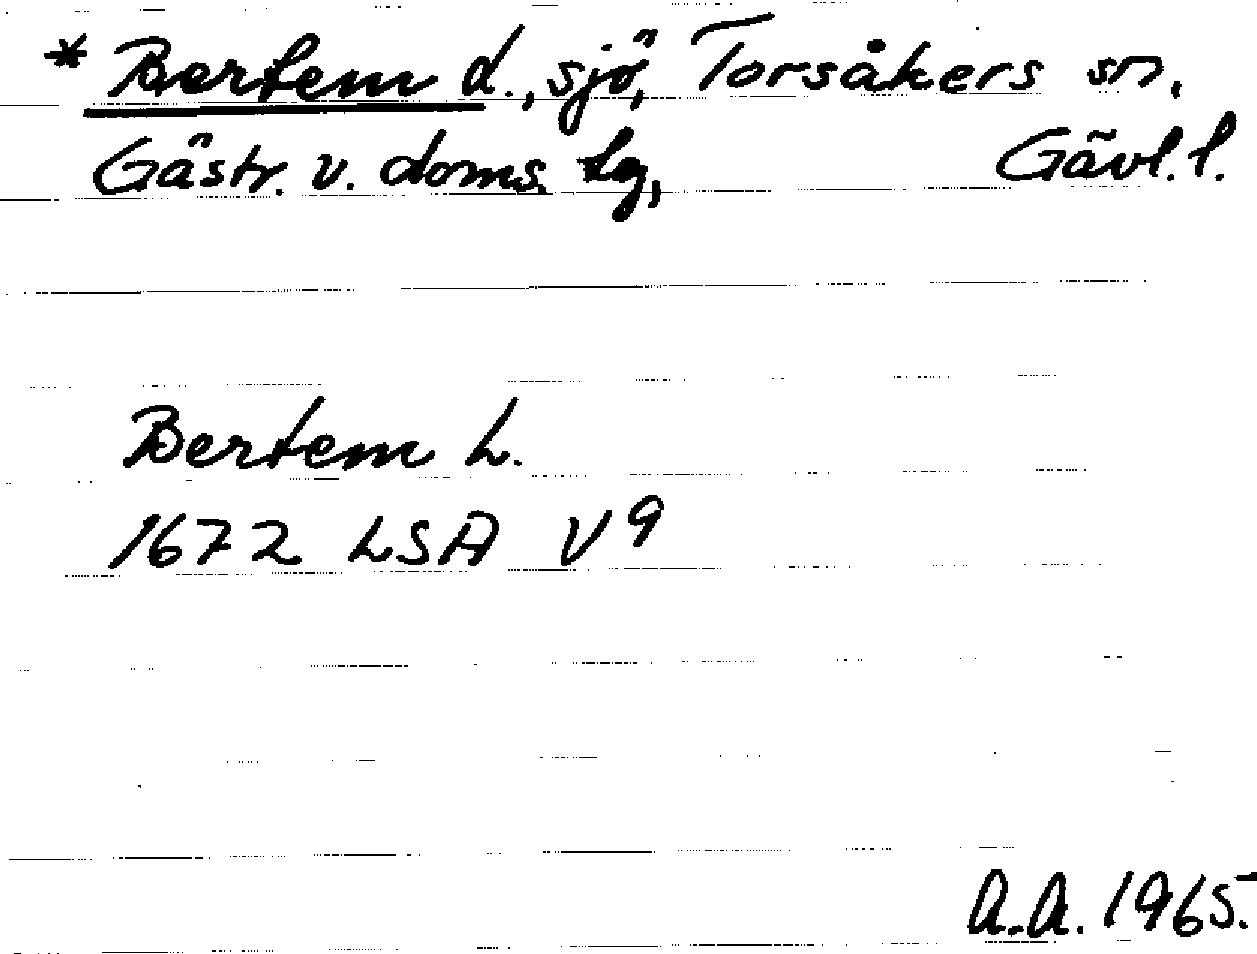 * Bertem d., sjö, Torsåkers sn,
Gästr. v. doms. tg, Gävl. l.
Bertem L.
1672 LSA V9
A.A. 1965.